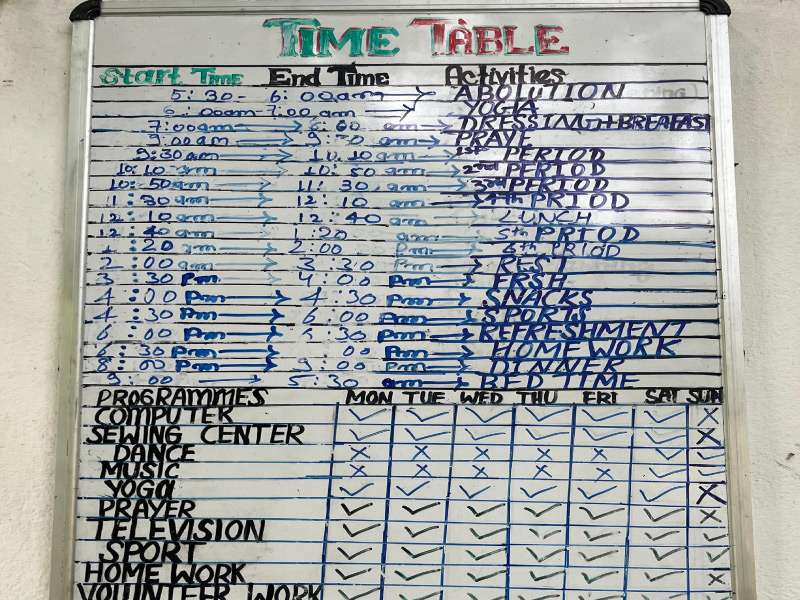 TIME TABLE
Start Time End Time Activities
5:30- 6:00am ABOLUTION
6:00am 7:00am YOGA
7:00am am DRESSING+BREAFAST
9:00am 9: am PRAYE
9:30am 10.10am 1st PERIOD
10:10 am 10:50 am 2nd PERIOD
10:50am 11:30 am 3rd PERIOD
11:30am 12:10 am 4th PRIOD
12:10am 12:40 am LUNCH
12:40 am 1:20 am 5th PRIOD
1:20 am 2:00 Pm 6th PRIOD
2:00 am 3:30 Pm REST
3:30 Pm 4:00 Pm FRSH
4:00 Pm 4:30 Pm SNACKS
4:30 Pm 6:00 Pm SPORTS
6:00 Pm 6:30 Pm REFRESHMENT
6:30 Pm 00 Pm HOME WORK
8:00 Pm 9:00 Pm DINNER
9:00 5:30 am BED TIME
PROGRAMMES MON TUE WED THU FRI SAT SUN
COMPUTER ✓ ✓ ✓ ✓ ✓ ✓ ×
SEWING CENTER ✓ ✓ ✓ ✓ ✓ ✓ ×
DANCE × × × × × ✓ ✓
MUSIC × × × × × ✓ ✓
YOGa ✓ ✓ ✓ ✓ ✓ ✓ ×
PRAYER ✓ ✓ ✓ ✓ ✓ ✓ ×
TELEVISION ✓ ✓ ✓ ✓ ✓ ✓ ✓
SPORT ✓ ✓ ✓ ✓ ✓ ✓ ✓
HOME WORK ✓ ✓ ✓ ✓ ✓ ✓ ×
VOLUNTEER WORK